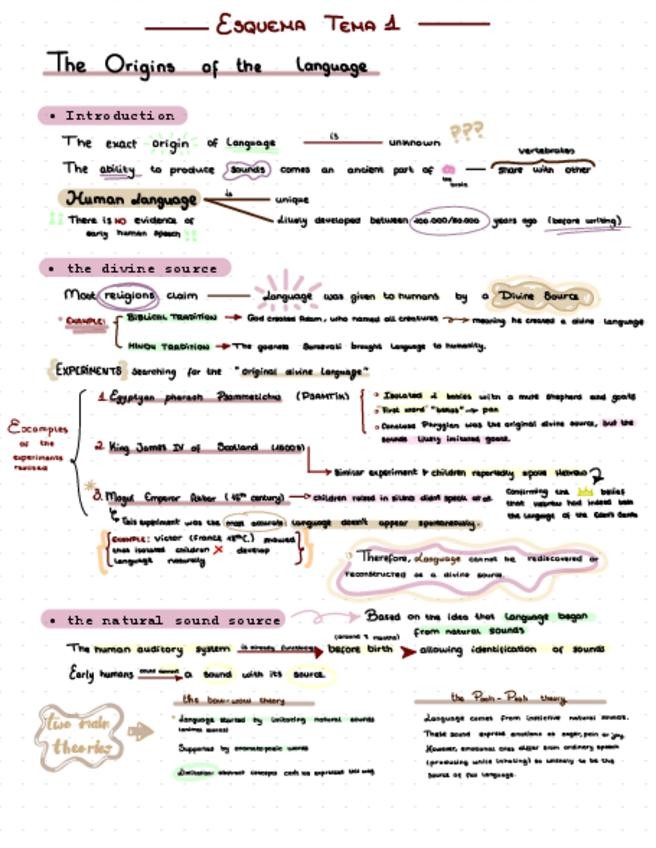 ESQUEMA TEMA 1
The Origins of the Language
• Introduction
The exact origin of Language is unknown ???
vertebrates
The ability to produce sounds comes an ancient part of the brain — share with other
Human Language is unique
There is NO evidence of
early human speech
likely developed between years ago (before writing)
• the divine source
Most religions claim Language was given to humans by a Divine Source
EXAMPLE:
BIBLICAL TRADITION → God created Adam, who named all creatures → meaning he created a divine language
HINDU TRADITION → The goddess brought language to humanity.
EXPERIMENTS searching for the "original divine language"
Examples
of the
experiments
1 Egyptyan pharaoh Psammetichus (PSAMTIK)
Isolated 2 babies with a mute shepherd and goats
First word "bekos" → pan
Conclude Phrygian was the original divine source, but the
sounds likely imitated goats.
2. King James IV of Scotland
Similar experiment children reportedly spoke Hebrew
confirming the belief
that Hebrew had indeed been
the language of the
3. Mogul Emperor Akbar (16th century) → children raised in silence didnt speak at all
This experiment was the most accurate: language doesn't appear spontaneously.
EXAMPLE: Victor (France 18th C.) showed
that isolated children X develop
language naturally
Therefore, Language cannot be rediscovered or
reconstructed as a divine source.
• the natural sound source
Based on the idea that language began
from natural sounds
The human auditory system is already functioning before birth allowing identification of sounds
Early humans a sound with its source
two main
theories
the bow-wow theory
Language started by imitating natural sounds
Supported by onomatopoeic words
Limitation: abstract concepts this way
the Pooh-Pooh theory
Language comes from instictive natural sounds.
These sound express emotions as anger, pain or joy.
However, emotional ones differ from ordinary speech
(producing while inhaling) so unlikely to be the
source of full language.